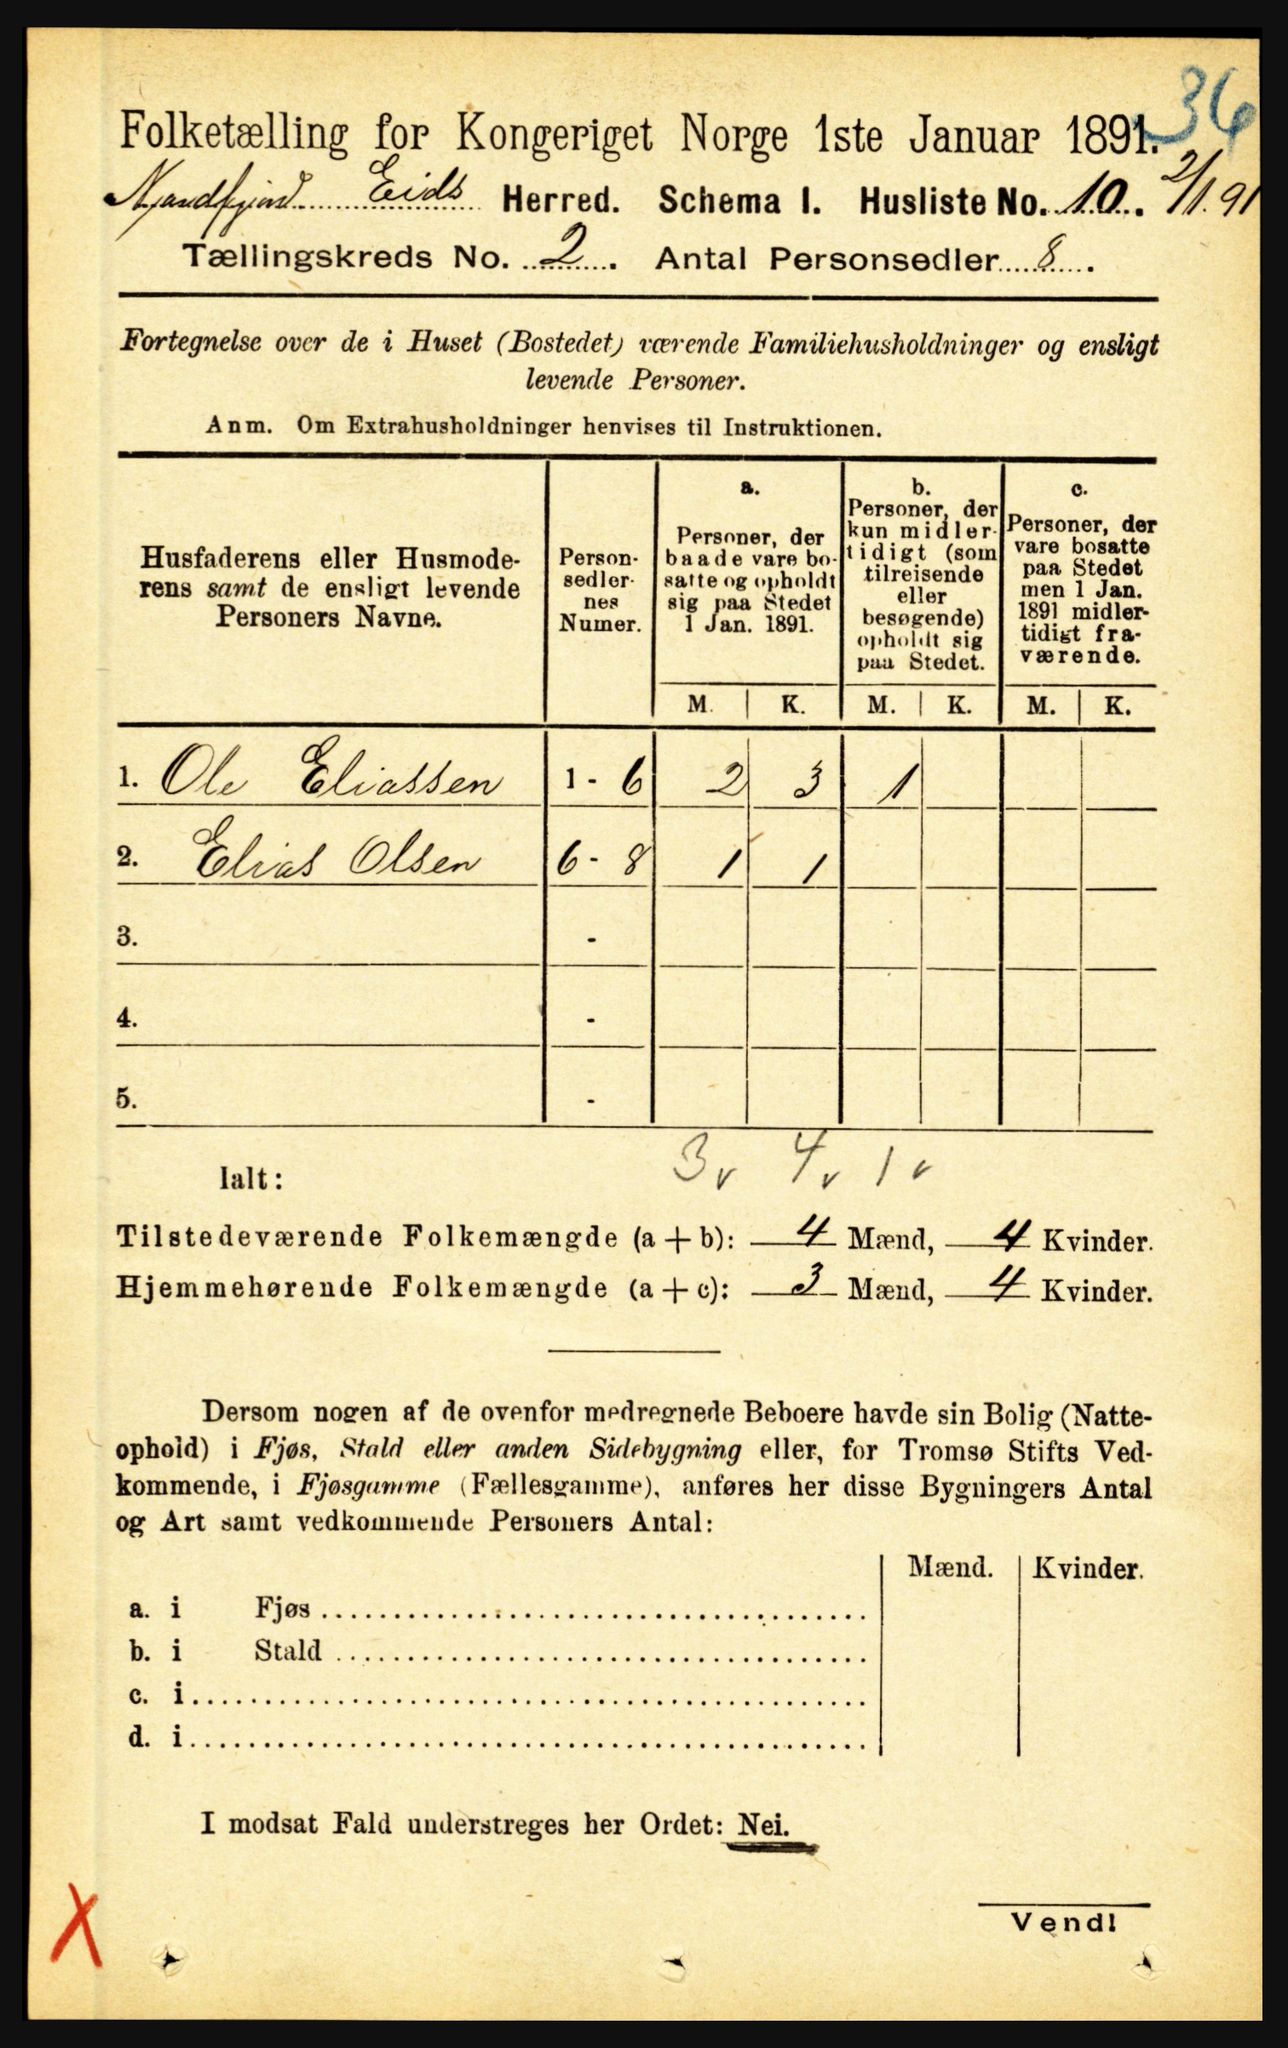 36
Folketælling for Kongeriget Norge 1ste Januar 1891.
Eids Herred. Schema I. Husliste No. 10. 2/1 91
Tællingskreds No. 2. Antal Personsedler 8.
Fortegnelse over de i Huset (Bostedet) værende Familiehusholdninger og ensligt
levende Personer.
Anm. Om Extrahusholdninger henvises til Instruktionen.
Husfaderens eller Husmode-
rens samt de ensligt levende
Personers Navne.
Person-
sedler-
nes
Numer.
a.
Personer, der
baade vare bo-
satte og opholdt
sig paa Stedet
1 Jan. 1891.
b.
Personer, der
kun midler-
tidigt (som
tilreisende
eller
besøgende)
opholdt sig
paa Stedet.
c.
Personer, der
vare bosatte
paa Stedet
men 1 Jan.
1891 midler-
tidigt fra-
værende.
M. K. M. K. M. K.
1. Ole Eliassen 1 - 6 2 3 1
2. Elias Olsen 6 - 8 1 1
3. -
4. -
5. -
Ialt: 3 v 4 v 1 v
Tilstedeværende Folkemængde (a + b): 4 Mænd, 4 Kvinder.
Hjemmehørende Folkemængde (a + c): 3 Mænd, 4 Kvinder.
Dersom nogen af de ovenfor medregnede Beboere havde sin Bolig (Natte-
ophold) i Fjøs, Stald eller anden Sidebygning eller, for Tromsø Stifts Ved-
kommende, i Fjøsgamme (Fællesgamme), anføres her disse Bygningers Antal
og Art samt vedkommende Personers Antal:
Mænd. Kvinder.
a. i Fjøs
b. i Stald
c. i
d. i
I modsat Fald understreges her Ordet: Nei.
X
Vend!